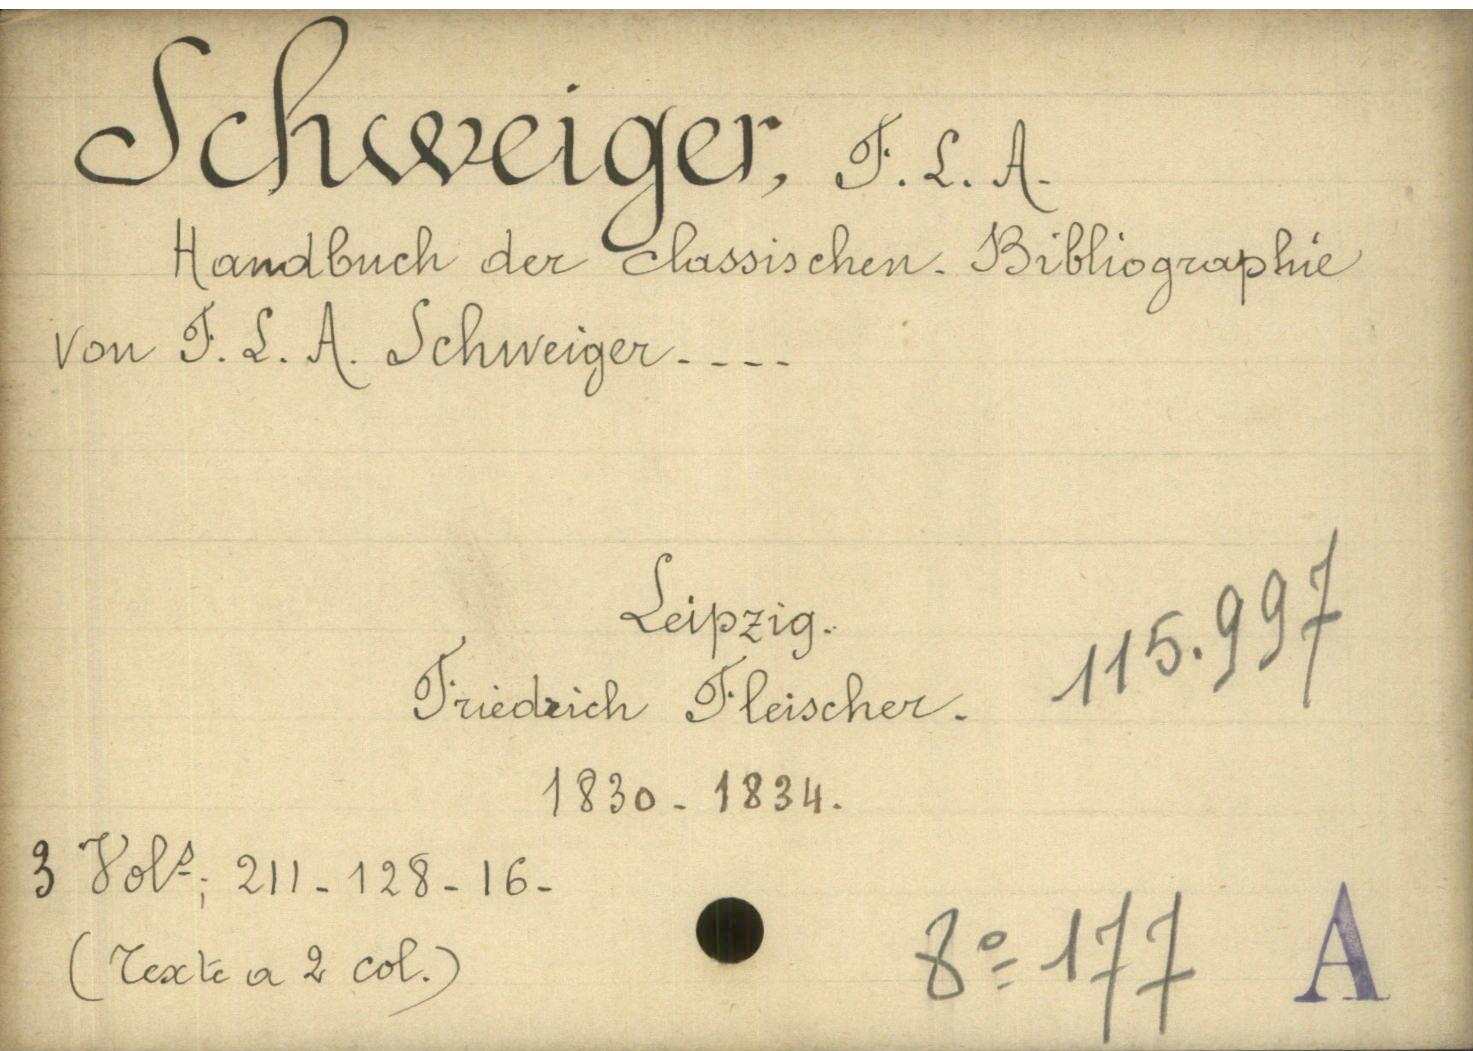 Schweiger, F. L. A.
Handbuch der classischen. Bibliographie
von F. L. A. Schweiger. - - -
Leipzig.
115.997
Friedrich Fleischer.
1830 - 1834.
3 Vols; 211 - 128 - 16 -
(Texte a 2 col.)
8º 177 A